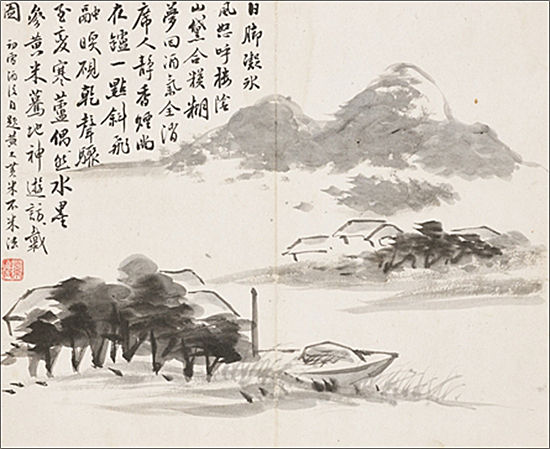 日腳凝冰
風怒呼陰
山黛合糢糊
夢回酒氣全消
席人靜香煙尚
在鑪一點斜飛
融硯乾聲驟
至变寒蘆偶然水墨
參黃米驀地神遊訪戴
圖
初雪酒後自題黃大米不米法